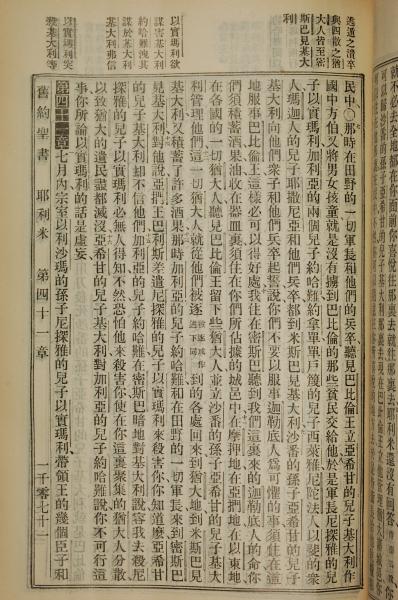 逃遁之潰卒
與四散之猶
大人皆至密
斯巴見基大
利
以實瑪利欲
謀害基大利
約哈難洩其
謀於基大利
基大利弗信
以實瑪利突
殺基大利等
民中○那時在田野的一切軍長和他們的兵卒聽見巴比倫王立亞希甘的兒子基大利作
國中方伯又將男女孩童就是沒有擄到巴比倫的那些貧民交給他於是軍長尼探雅的兒
子以實瑪利加利亞的兩個兒子約哈難約拿單單戶篾的兒子西萊雅尼陀法人以斐的衆
人瑪迦人的兒子耶撒尼亞和他們兵卒都到米斯巴見基大利沙番的孫子亞希甘的兒子
基大利向他們衆子和他們兵卒起誓說你們不要以服事迦勒底人爲可懼的事須住在這
地服事巴比倫王這樣必可以得好處我住在密斯巴聽到我們這裏來的迦勒底人的命你
們須積蓄酒果油收在器皿裏須住在你們所佔據的城邑中在摩押地在亞捫地在以東地
在各國的一切猶大人聽見巴比倫王留下些猶大人並立沙番的孫子亞希甘的兒子基大
利管理他們這一切猶大人就從他們被逐到的各處回來到猶大地到米斯巴見
基大利又積蓄了許多酒果那時加利亞的兒子約哈難和在田野的一切軍長來到密斯巴
見基大利對他說亞捫王巴利斯差遣尼探雅的兒子以實瑪利來殺害你你知道麼亞希甘
的兒子基大利却不信他們加利亞的兒子約哈難在密斯巴暗地對基大利說容我去殺尼
探雅的兒子以實瑪利必無人得知不然恐怕他來殺害你使在你這裏聚集的猶大人分散
以致猶大的遺民盡都滅沒亞希甘的兒子基大利對加利亞的兒子約哈難說你不可行這
事你所論以實瑪利的話是虛妄
第四十一章七月內宗室以利沙瑪的孫子尼探雅的兒子以實瑪利帶領王的幾個臣子和
舊約聖書 耶利米 第四十一章 一千零七十一